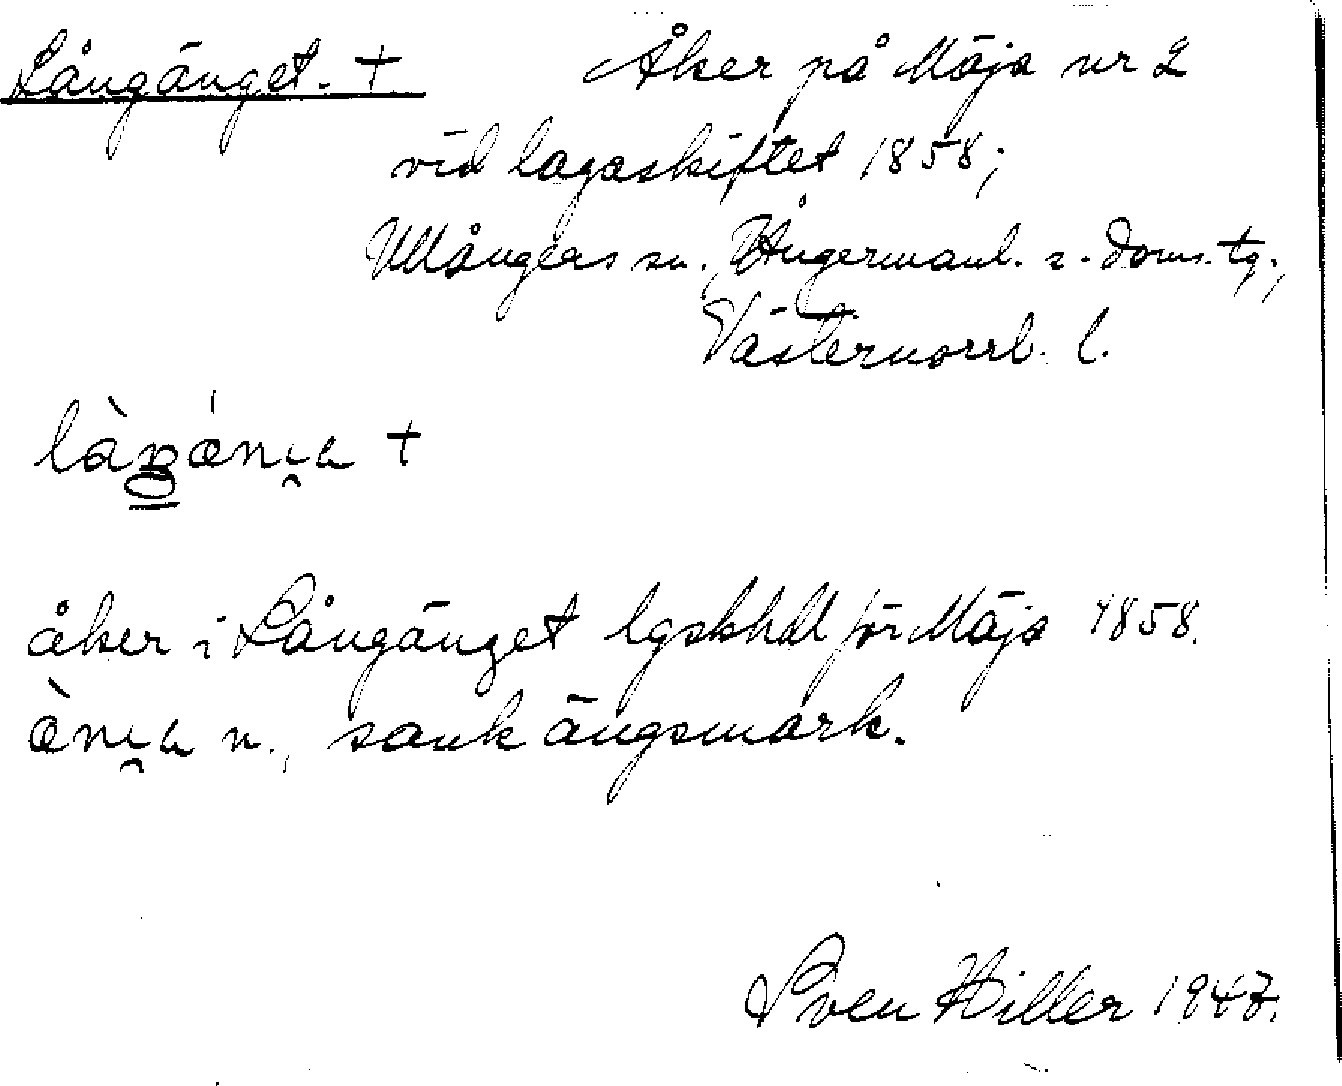 Långänget. + Åker på Mäja nr 2
vid lagaskiftet 1858;
Ullångers sn., Ångermanl. s. doms. tg.,
Västernorrl. l.
+
åker i Långänget lgskhdl för Mäja 1858.
n., sank ängsmark.
Sven Hiller 1947.